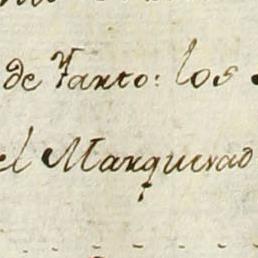 de Tanto: los
el Marquesad